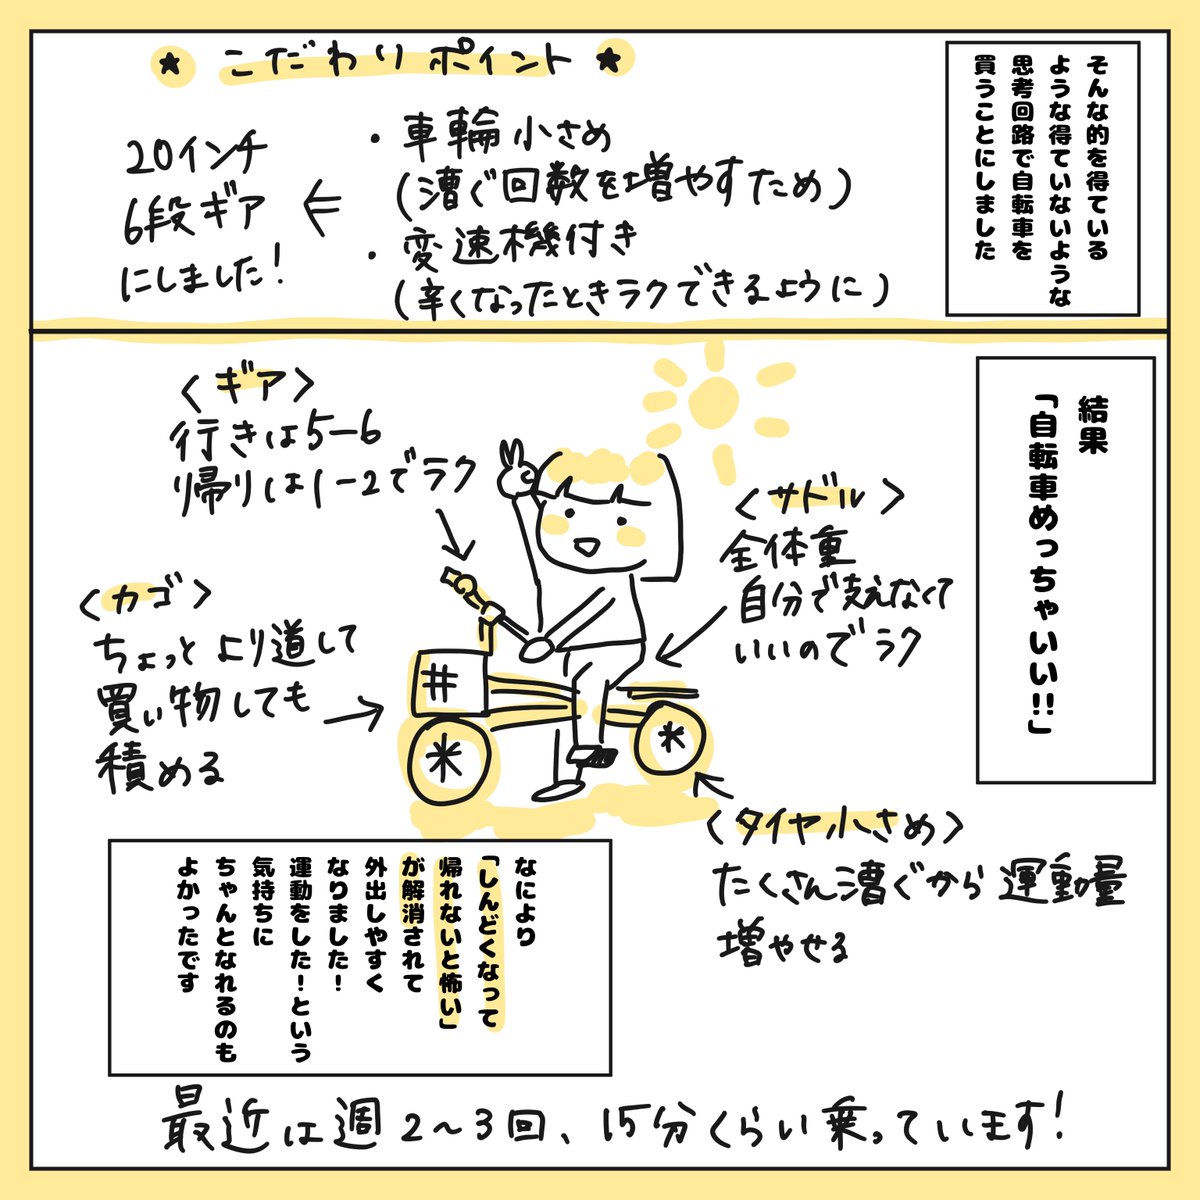 そんな的を得ている
ような得ていないような
思考回路で自転車を
買うことにしました
★ こだわりポイント ★
・車輪小さめ
(漕ぐ回数を増やすため)
・変速機付き
(辛くなったときラクできるように)
⇐
20インチ
6段ギア
にしました!
結果
「自転車めっちゃいい!!」
<ギア>
行きは5-6
帰りは1-2でラク
<サドル>
全体重
自分で支えなくて
いいのでラク
<カゴ>
ちょっとより道して
買い物しても
積める
<タイヤ小さめ>
たくさん漕ぐから運動量
増やせる
なにより
「しんどくなって
帰れないと怖い」
が解消されて
外出しやすく
なりました!
運動をした!という
気持ちに
ちゃんとなれるのも
よかったです
最近は週2~3回、15分くらい乗っています!